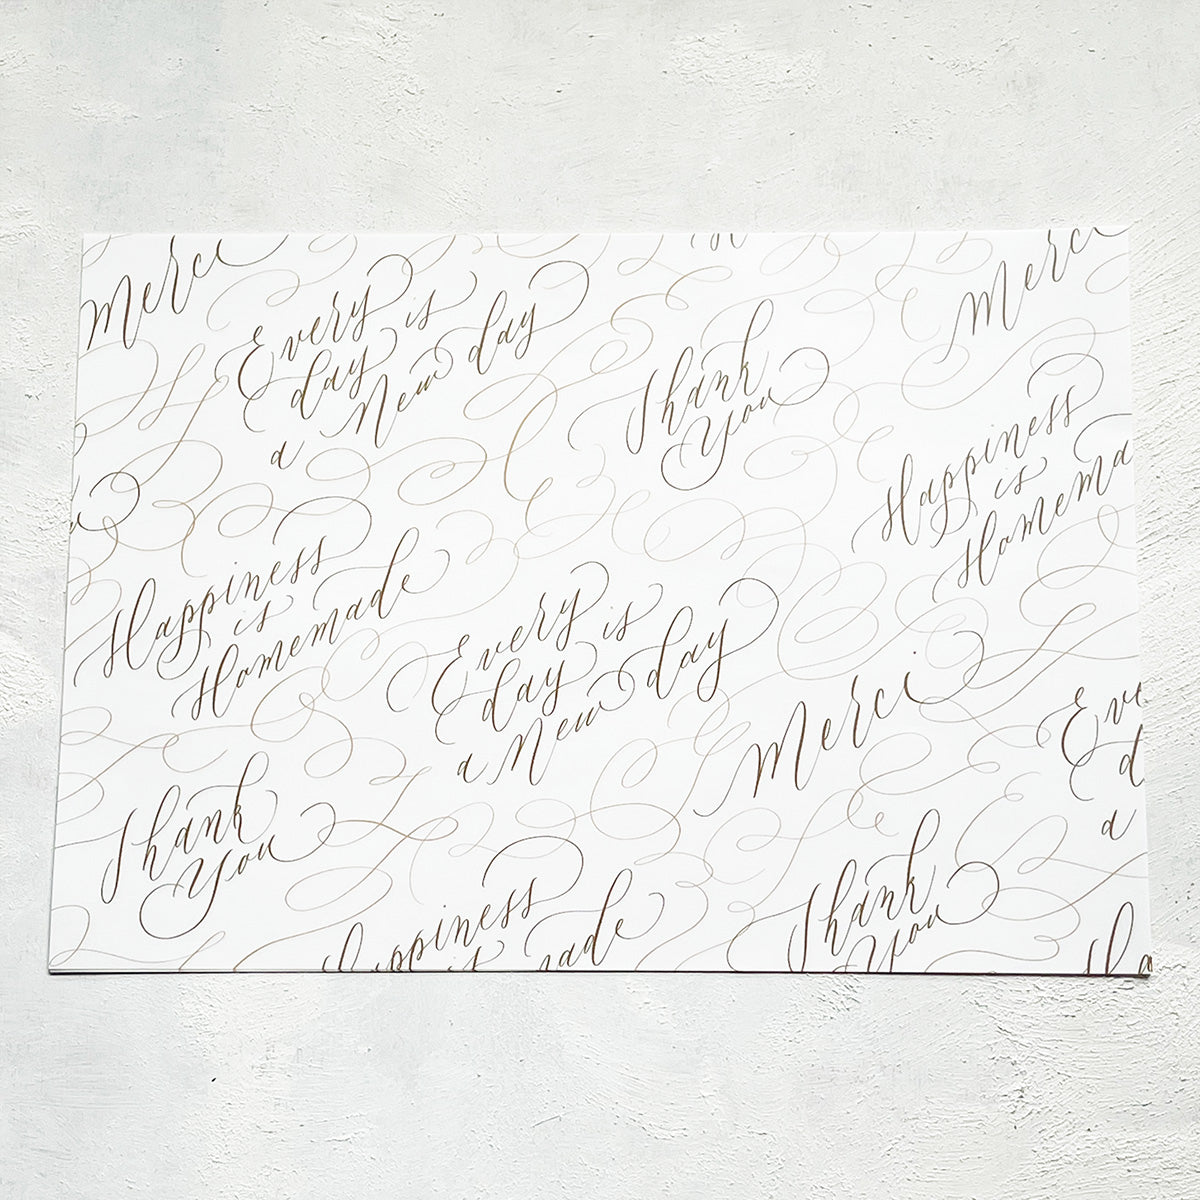 Merci
Every is
day
a New day
Thank
You
Merci
Happiness
is
Homema
Happiness
is
Homemade
Every is
day
a New day
Merci
Eve
d
a
Thank
You
Happiness
is
made
Thank
You